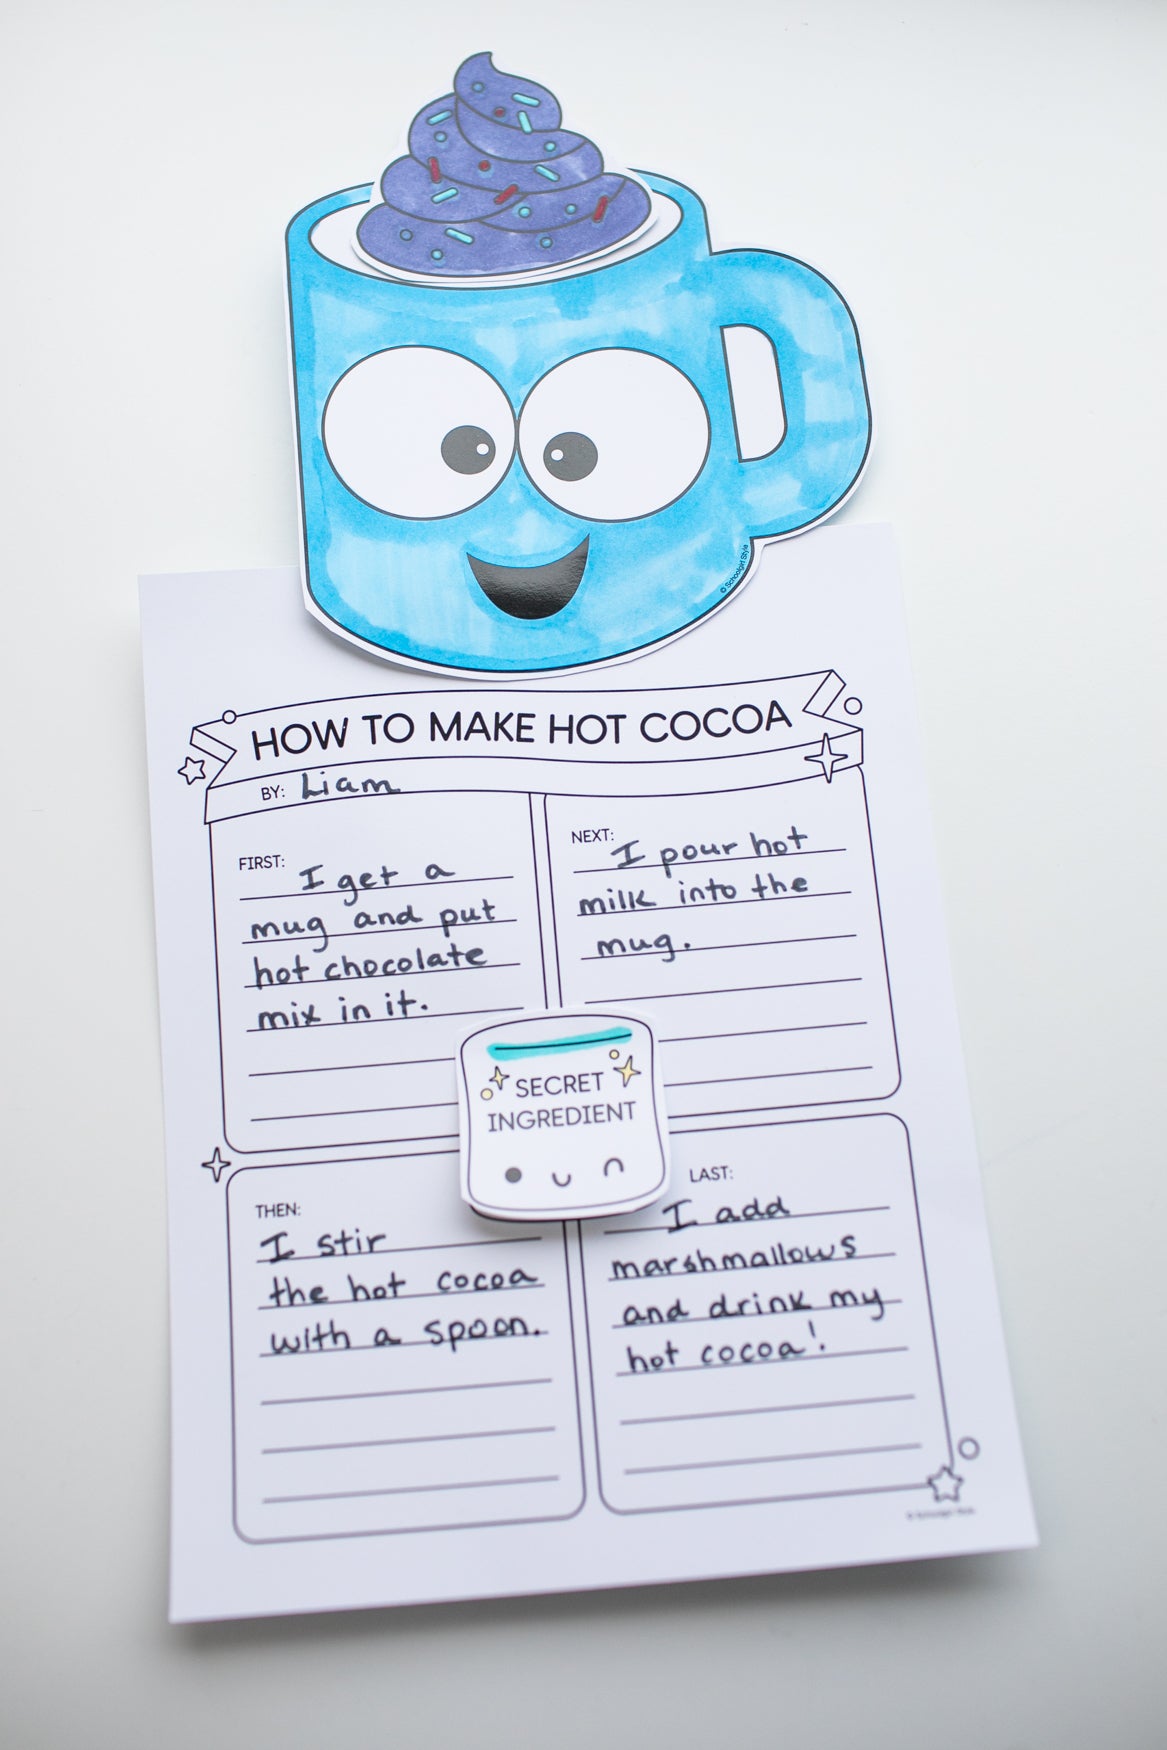 © Schoolgirl Style
HOW TO MAKE HOT COCOA
BY: Liam
FIRST: I get a
mug and put
hot chocolate
mix in it.
NEXT: I pour hot
milk into the
mug.
SECRET
INGREDIENT
THEN:
I stir
the hot cocoa
with a spoon.
LAST:
I add
marshmallows
and drink my
hot cocoa!
© Schoolgirl Style